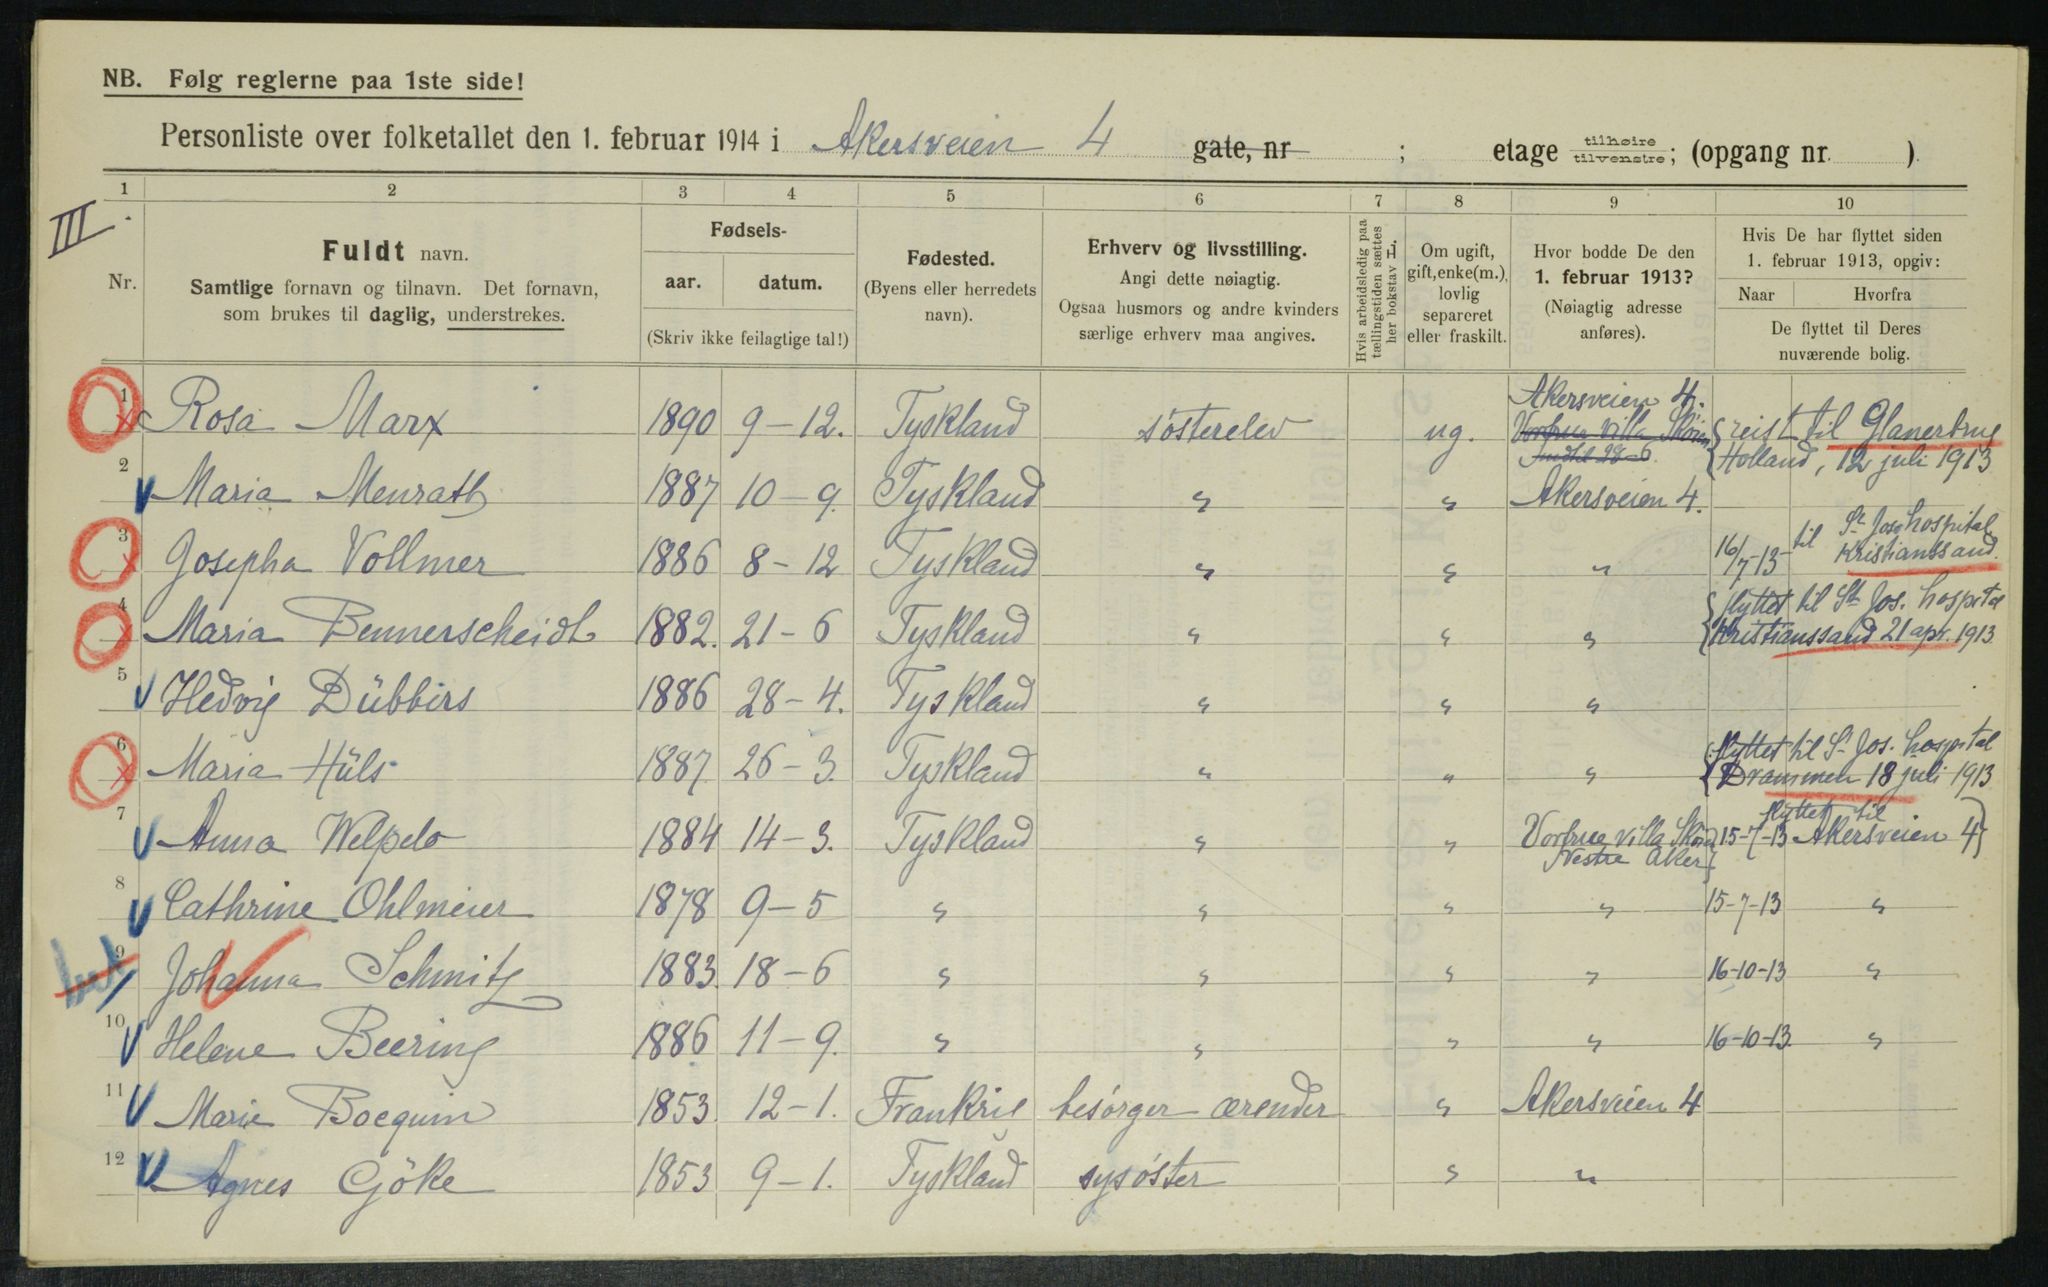 NB. Følg reglerne paa 1ste side!
Personliste over folketallet den 1. februar 1914 i Akersveien 4 gate, nr ; etage tilhøire tilvenstre; (opgang nr. ).
1 2 3 4 5 6 7 8 9 10
III.
Nr.
Fuldt navn.
Samtlige fornavn og tilnavn. Det fornavn,
som brukes til daglig, understrekes.
Fødsels-
aar. datum.
(Skriv ikke feilagtige tal!)
Fødested.
(Byens eller herredets
navn).
Erhverv og livsstilling.
Angi dette nøiagtig.
Ogsaa husmors og andre kvinders
særlige erhverv maa angives.
Hvis arbeidsledig paa
tællingstiden sættes
her bokstav L.
Om ugift,
gift, enke(m.),
lovlig
separeret
eller fraskilt.
Hvor bodde De den
1. februar 1913?
(Nøiagtig adresse
anføres).
Hvis De har flyttet siden
1. februar 1913, opgiv:
Naar Hvorfra
De flyttet til Deres
nuværende bolig.
1 x Rosa Marx 1890 9-12. Tyskland søsterelev ug. Akersveien 4.
Vorfrue Villa Skøien
Indtil 28-6
{reist til Glanerbrug
{Holland, 12 juli 1913
2 Maria Menrath 1887 10-9. Tyskland " " Akersveien 4.
3 x Josepha Vollmer 1886 8-12 Tyskland " " " 16/7-13- til St Jos hospital
Kristianssand.
4 x Maria Bennerscheidt 1882. 21-6 Tyskland " " " {flyttet til St. Jos. hospital
{Kristianssand 21 apr. 1913
5 Hedvig Dübbirs 1886 28-4. Tyskland " " "
6 x Maria Hüls 1887 26-3. Tyskland " " " {flyttet til St Jos. hospital
{Drammen 18 juli 1913
7 Anna Welpelo 1884 14-3. Tyskland " " Vorfrue Villa Skøien
Vestre Aker} 15-7-13 flyttet til
Akersveien 4}
8 Cathrine Ohlmeier 1878 9-5 " " " " 15-7-13 "
9 Johanna Schmitz 1883. 18-6 " " " " 16-10-13 "
10 Helene Beering 1886 11-9. " " " " 16-10-13. "
11 Marie Bocquin 1853. 12-1. Frankrig besørger ærender " Akersveien 4
12 Agnes Göke 1853 9-1. Tyskland sysøster " "